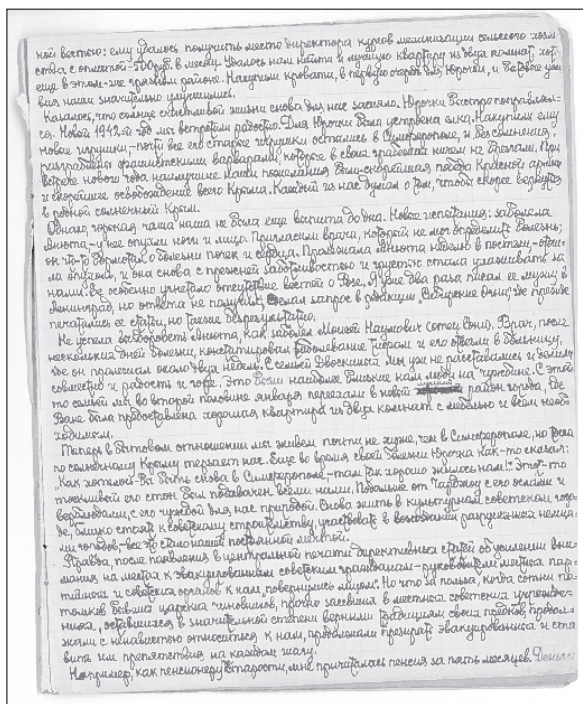 ной вестью: ему удалось получить место директора курсов механизации сельского хозяй-
ства с оплатой – 700 руб. в месяц. Удалось нам найти и лучшую квартиру из двух комнат, хотя
еще в этом-же грязном районе. Накупили кровати, в первую очередь для Юрочки, и бытовые усло-
вия наши значительно улучшились.
Казалось, что солнце счастливой жизни снова для нас засияло. Юрочка быстро поправлял-
ся. Новый 1942-й год мы встретили радостно. Для Юрочки была устроена елка. Накупили ему
новые игрушки, – почти все его старые игрушки остались в Симферополе, и, без сомнения,
разграблены фашистскими варварами, которые в своих грабежах ничем не брезгали. При
встрече нового года наилучшие наши пожелания были – скорейшая победа Красной армии
и скорейшее освобождение всего Крыма. Каждый из нас думал о том, чтобы скорее вернуться
в родной солнечный Крым.
Однако, горькая чаша наша не была еще испита до дна. Новое испытание: заболела
Анюта – у нее опухли ноги и лицо. Пригласили врача, который не мог определить болезнь;
он что-то бормотал о болезни почек и сердца. Пролежала Анюта неделю в постели, – спа-
ла опухоль, и она снова с прежней заботливостью и энергией стала ухаживать за
нами. Ее особенно угнетало отсутствие вестей о Розе. Я уже два раза писал ее мужу в
Ленинград, но ответа не получил; сделал запрос в редакции „Сибирские Огни", где прежде
печатались ее статьи, но также безрезультатно.
Не успела выздороветь Анюта, как заболел Моисей Наумович (отец Сони). Врач, после
нескольких дней болезни, констатировал заболевание тифом и его отвезли в больницу,
где он пролежал около двух недель. С семьей Двоскиных мы уже не расставались и делили
совместно и радость и горе. Это были наиболее близкие нам люди на чужбине. С этой-
то семьей мы, во второй половине января переехали в новый район города, где
Ване была предоставлена хорошая квартира из двух комнат с мебелью и всем необ-
ходимым.
Теперь в бытовом отношении мы живем почти не хуже, чем в Симферополе, но тоска
по солнечному Крыму терзает нас. Еще во время своей болезни Юрочка как-то сказал:
„Как хотелось-бы быть снова в Симферополе, – там так хорошо жилось нам!" Этот-то
тоскливый его стон был подхвачен всеми нами. Подальше от Чарджоу с его ослами и
верблюдами, с его чужой для нас природой. Снова жить в культурном советском горо-
де, близко стоять к советскому строительству, участвовать в воссоздании разрушенных немца-
ми городов, – все это стало нашей постоянной мечтой.
Правда, после появления в центральной печати директивных статей об усилении вни-
мания на местах к эвакуированным советским гражданам – руководители местных пар-
тийных и советских органов к нам „повернулись лицом". Но что за польза, когда сотни по-
томков бывших царских чиновников, прочно засевших в местных советских учрежде-
ниях, оставшихся в значительной степени верными традициям своих предков, продол-
жали с ненавистью относиться к нам, продолжали презирать эвакуированных и ста-
вить им препятствия на каждом шагу.
Например, как пенсионеру старости, мне причиталась пенсия за пять месяцев. Деньги